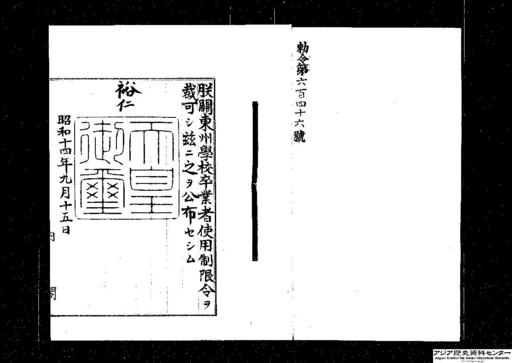 勅令第六百四十六號
朕關東州學校卒業者使用制限令ヲ
裁可シ茲ニ之ヲ公布セシム
裕仁
天皇
御璽
昭和十四年九月十五日
内閣
アジア歴史資料センター
Japan Center for Asian Historical Records